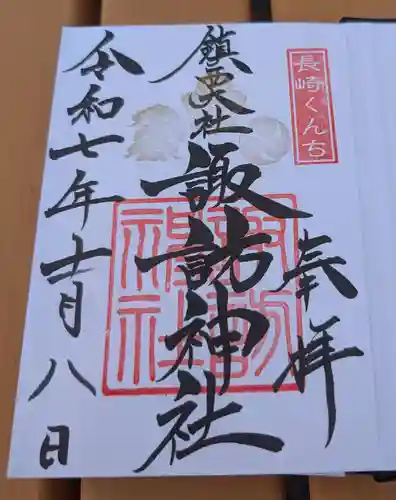 長崎くんち
奉拝
鎮西大社 諏訪神社
諏訪
神社
令和七年十一月八日